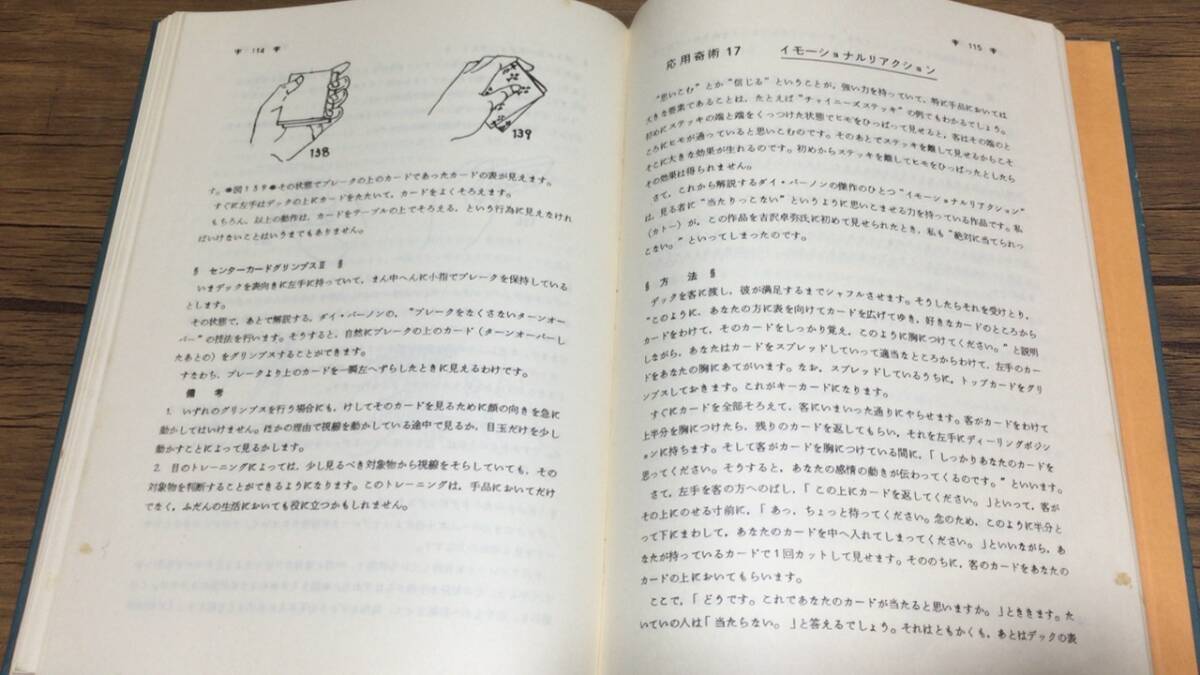 〒 114 〒
138
139
す。●図139●その状態でブレークの上のカードであったカードの表が見えます。
すぐに左手はデックの上にカードをたたいて，カードをよくそろえます。
もちろん，以上の動作は，カードをテーブルの上でそろえる，という行為に見えなけれ
ばいけないことはいうまでもありません。
§ センターカードグリンプスⅡ §
いまデックを表向きに左手に持っていて，まん中へんに小指でブレークを保持している
とします。
その状態で，あとで解説する，ダイ・バーノンの，“ブレークをなくさないターンオー
バー”の技法を行います。そうすると，自然にブレークの上のカード（ターンオーバーし
たあとの）をグリンプスすることができます。
すなわち，ブレークより上のカードを一瞬左へずらしたときに見えるわけです。
備 考
1. いずれのグリンプスを行う場合にも，けしてそのカードを見るために顔の向きを急に
動かしてはいけません。ほかの理由で視線を動かしている途中で見るか，目玉だけを少し
動かすことによって見るかします。
2. 目のトレーニングによっては，少し見るべき対象物から視線をそらしていても，その
対象物を判断することができるようになります。このトレーニングは，手品においてだけ
でなく，ふだんの生活においても役に立つかもしれません。
〒 115 〒
応用奇術 17 イモーショナルリアクション
“思いこむ”とか“信じる”ということが，強い力を持っていて，特に手品においては
大きな要素であることは，たとえば“チャイニーズステッキ”の例でもわかるでしょう。
初めにステッキの端と端をくっつけた状態でヒモをひっぱって見せると，客はその端のと
ころにヒモが通っていると思いこむのです。そのあとでステッキを離して見せるからこそ
そこに大きな効果が生れるのです。初めからステッキを離してヒモをひっぱったとしたら
その効果は得られません。
さて，これから解説するダイ・バーノンの傑作のひとつ“イモーショナルリアクション”
は，見る者に“当たりっこない”というように思いこませる力を持っている作品です。私
（カトー）が，この作品を吉沢卓弥氏に初めて見せられたとき，私も“絶対に当てられっ
こない。”といってしまったのです。
§ 方 法 §
デックを客に渡し，彼が満足するまでシャフルさせます。そうしたらそれを受けとり，
“このように，あなたの方に表を向けてカードを広げてゆき，好きなカードのところから
カードをわけて，そのカードをしっかり覚え，このように胸につけてください。”と説明
しながら，あなたはカードをスプレッドしていって適当なところからわけて，左手のカー
ドをあなたの胸にあてがいます。なお，スプレッドしているうちに，トップカードをグリ
ンプスしておきます。これがキーカードになります。
すぐにカードを全部そろえて，客にいまいった通りにやらせます。客がカードをわけて
上半分を胸につけたら，残りのカードを返してもらい，それを左手にディーリングポジシ
ョンに持ちます。そして客がカードを胸につけている間に，「しっかりあなたのカードを
思ってください。そうすると，あなたの感情の動きが伝わってくるのです。”といいます。
さて，左手を客の方へのばし，「この上にカードを返してください。」といって，客が
その上にのせる寸前に，「あっ，ちょっと待ってください。念のため，このように半分と
って下にまわして，あなたのカードを中へ入れてしまってください。」といいながら，あ
なたが持っているカードで1回カットして見せます。そののちに，客のカードをあなたの
カードの上においてもらいます。
ここで，「どうです。これであなたのカードが当たると思いますか。」とききます。た
いていの人は「当たらない。」と答えるでしょう。それはともかくも，あとはデックの表